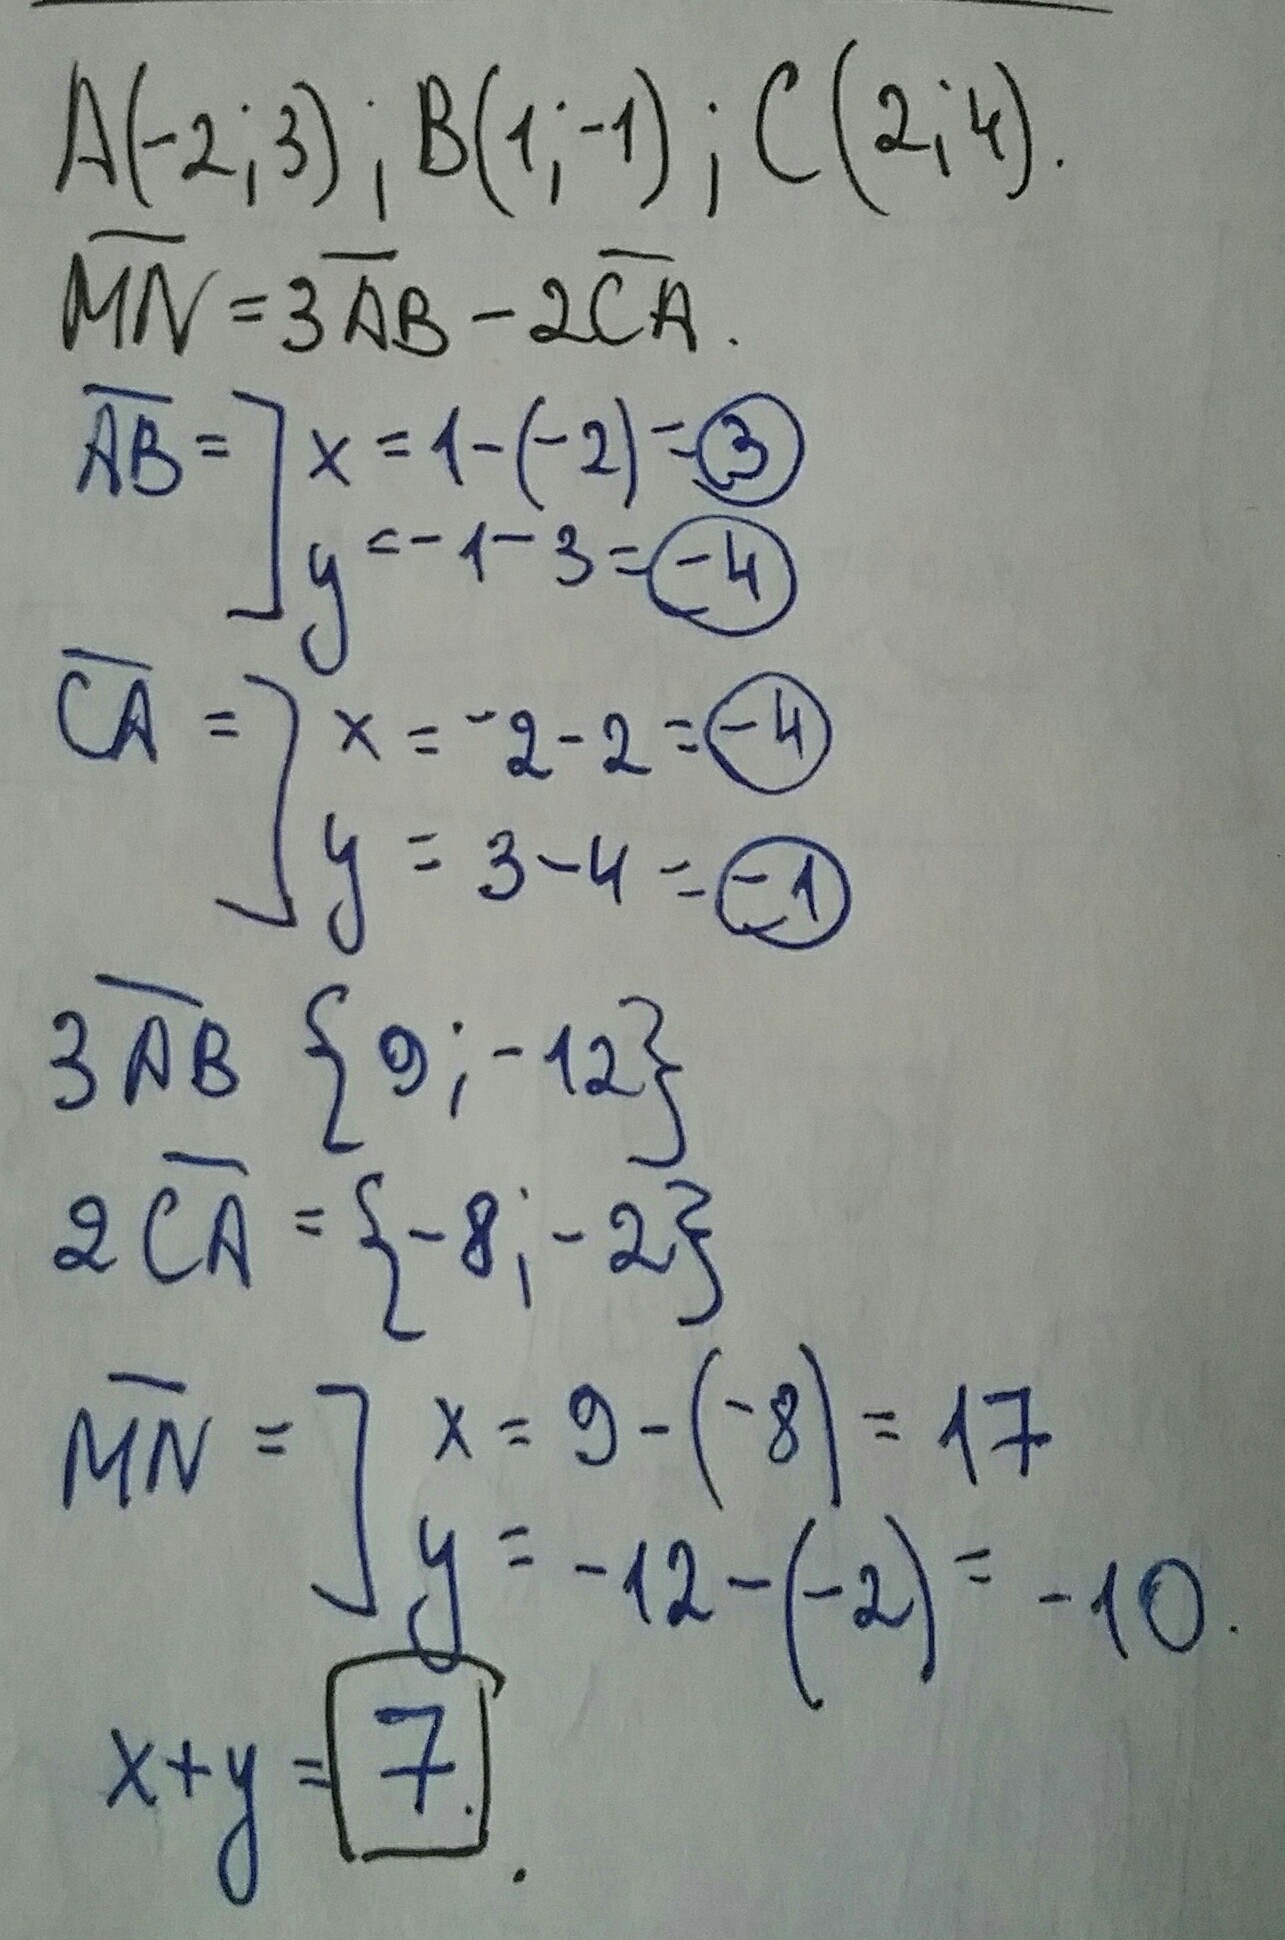 A(-2;3); B(1;-1); C(2;4).
M̅N̅ = 3A̅B̅ - 2C̅A̅.
A̅B̅ = ] x = 1-(-2) = 3
y = -1-3 = -4
C̅A̅ = ] x = -2-2 = -4
y = 3-4 = -1
3A̅B̅ {9; -12}
2C̅A̅ = {-8; -2}
M̅N̅ = ] x = 9-(-8) = 17
y = -12-(-2) = -10.
x+y = 7.